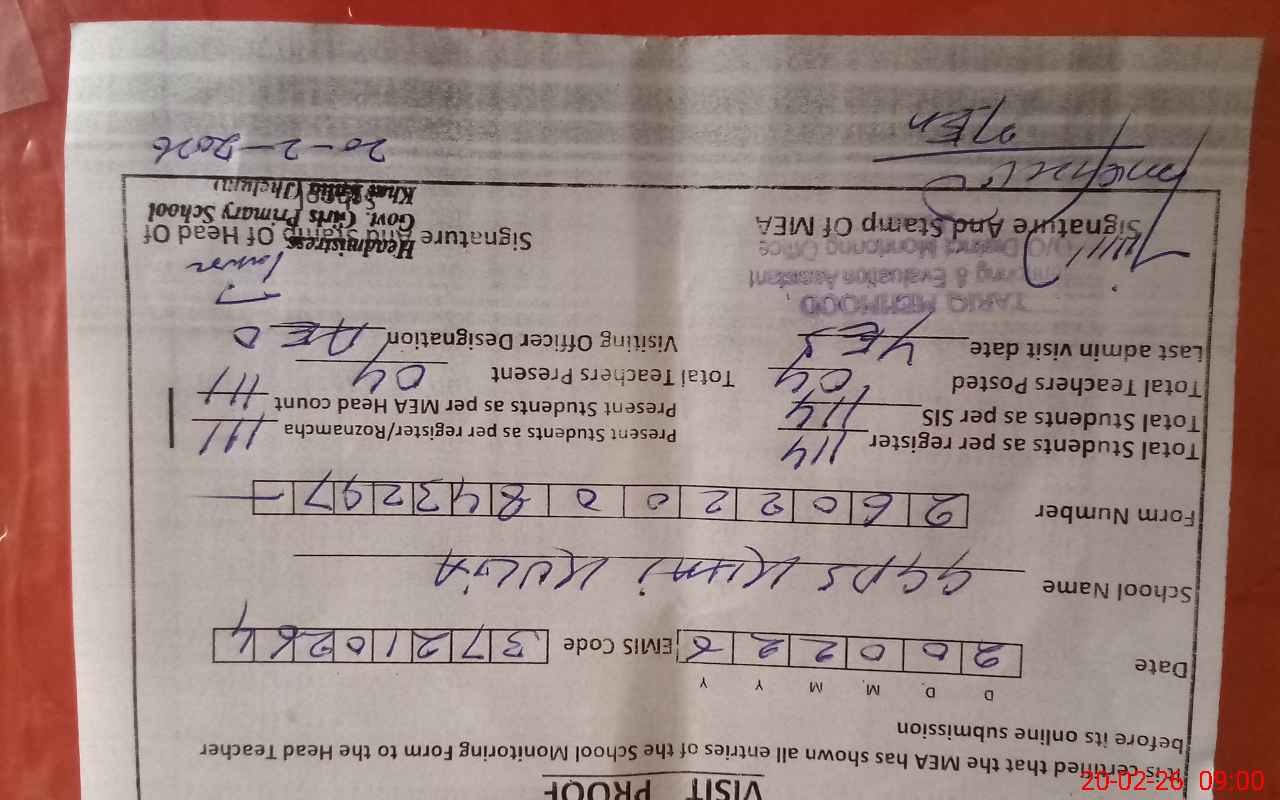 VISIT PROOF
It is certified that the MEA has shown all entries of the School Monitoring Form to the Head Teacher
before its online submission
D D M M Y Y
Date 2 0 0 2 2 6 EMIS Code 3 7 2 1 0 2 6 4
School Name GGPS KHAI KULIA
Form Number 2 6 0 2 2 0 0 8 4 3 2 9 7
Total Students as per register 114 Present Students as per register/Roznamcha 111
Total Students as per SIS 114 Present Students as per MEA Head count 111
Total Teachers Posted 04 Total Teachers Present 04
Last admin visit date YES Visiting Officer Designation AEO
TARIQ MEHMOOD
Monitoring & Evaluation Assistant
O/O District Monitoring Office
Signature And Stamp Of MEA Signature And Stamp Of Head Of
School
Headmistress
Govt. Girls Primary School
Khai (Jhelum)
20-2-2026
20-02-26 09:00